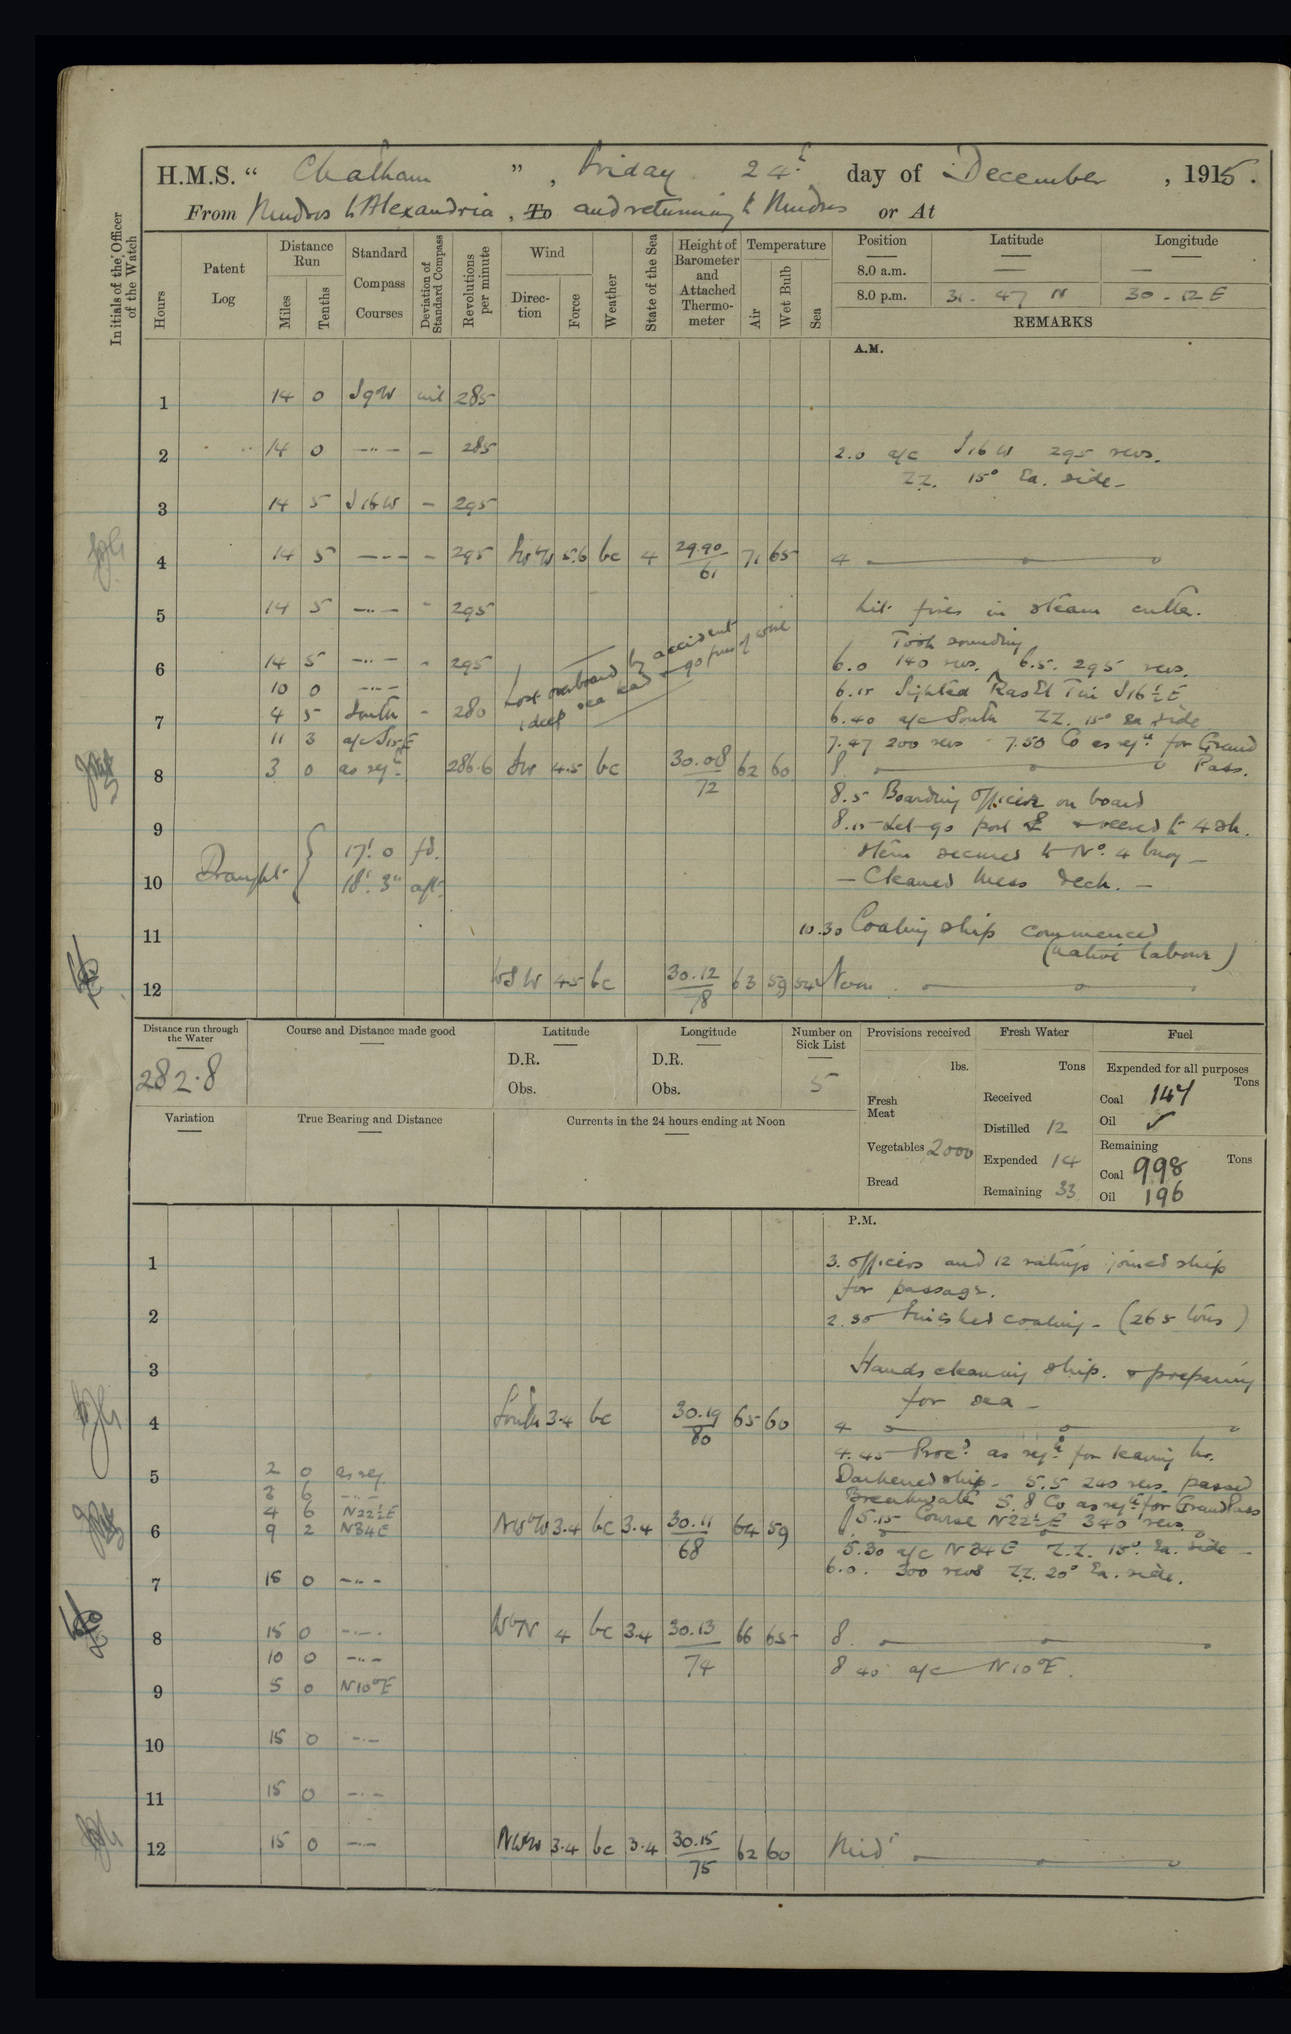 H.M.S. “ Chatham ” , Friday 24th day of December , 1915 .
From Mudros to Alexandria , To and returning to Mudros or At
Initials of the Officer of the Watch
Hours
Patent Log
Distance Run
Miles
Tenths
Standard Compass Courses
Deviation of Standard Compass
Revolutions per minute
Wind
Direction
Force
Weather
State of the Sea
Height of Barometer and Attached Thermometer
Temperature
Air
Wet Bulb
Sea
Position Latitude Longitude
8.0 a.m. — —
8.0 p.m. 31 - 47 N 30 - 12 E
REMARKS
A.M.
1 14 0 S9W nil 285
2 14 0 —"— — 285 2.0 a/c S16W 295 revs.
ZZ. 15° Ea. side —
3 14 5 S16W — 295
4 14 5 — - - - 295 SWbW 5.6 bc 4 29.90/61 71 65 4
5 14 5 —"— - 295 Lit fires in steam cutter.
Took sounding
6 14 5 —"— - 295 6.0 140 revs. 6.5. 295 revs.
Lost overboard by accident
1 deep sea lead & 90 fms of wire
10 0 —"— 6.15 Sighted Ras El Tin S16½E
7 4 5 South - 280 6.40 a/c South ZZ. 15° Ea side
11 3 a/c S15E 7.47 200 revs - 7.50 Co as reqd for Grand
8 3 0 as reqd 286.6 SW 4.5 bc 30.08/72 62 60 8 Pass.
8.5 Boarding Officer on board
9 8.15 Let go port ⚓ & veered to 4 sh.
Draught { 17'. 0 fd. Stern secured to No. 4 buoy —
10 18'. 3" aft — Cleaned Mess deck. —
11 10.30 Coaling ship commenced
(native labour)
12 WSW 4.5 bc 30.12/78 63 59 54 Noon
Distance run through the Water
282.8
Course and Distance made good
Latitude
D.R.
Obs.
Longitude
D.R.
Obs.
Number on Sick List
5
Variation
True Bearing and Distance
Currents in the 24 hours ending at Noon
Provisions received
lbs.
Fresh Meat
Vegetables 2000
Bread
Fresh Water
Tons
Received
Distilled 12
Expended 14
Remaining 33
Fuel
Expended for all purposes
Tons
Coal 147
Oil ✓
Remaining
Tons
Coal 998
Oil 196
P.M.
1 3. officers and 12 ratings joined ship
for passage.
2 2.30 Finished coaling - (265 tons)
3 Hands cleaning ship. & preparing
for sea —
4 South 3.4 bc 30.19/80 65 60 4
4.45 Proc'd as reqd for leaving hr.
5 2 0 as req Darkened ship - 5.5 200 revs. passed
3 6 —"— Breakwater 5.8 Co as reqd for Grand Pass
4 6 N22½E 5.15 Course N22½E 340 revs.
6 9 2 N34E NWbW 3.4 bc 3.4 30.11/68 64 59
5.30 a/c N34E Z.Z. 15° Ea. side —
6.0. 300 revs ZZ. 20° Ea. side.
7 15 0 —"—
8 15 0 —"— WbN 4 bc 3.4 30.13/74 66 65 8
10 0 —"— 8 40 a/c N10°E.
9 5 0 N10°E
10 15 0 —"—
11 15 0 —"—
12 15 0 —"— NWbW 3.4 bc 3.4 30.15/75 62 60 Midt